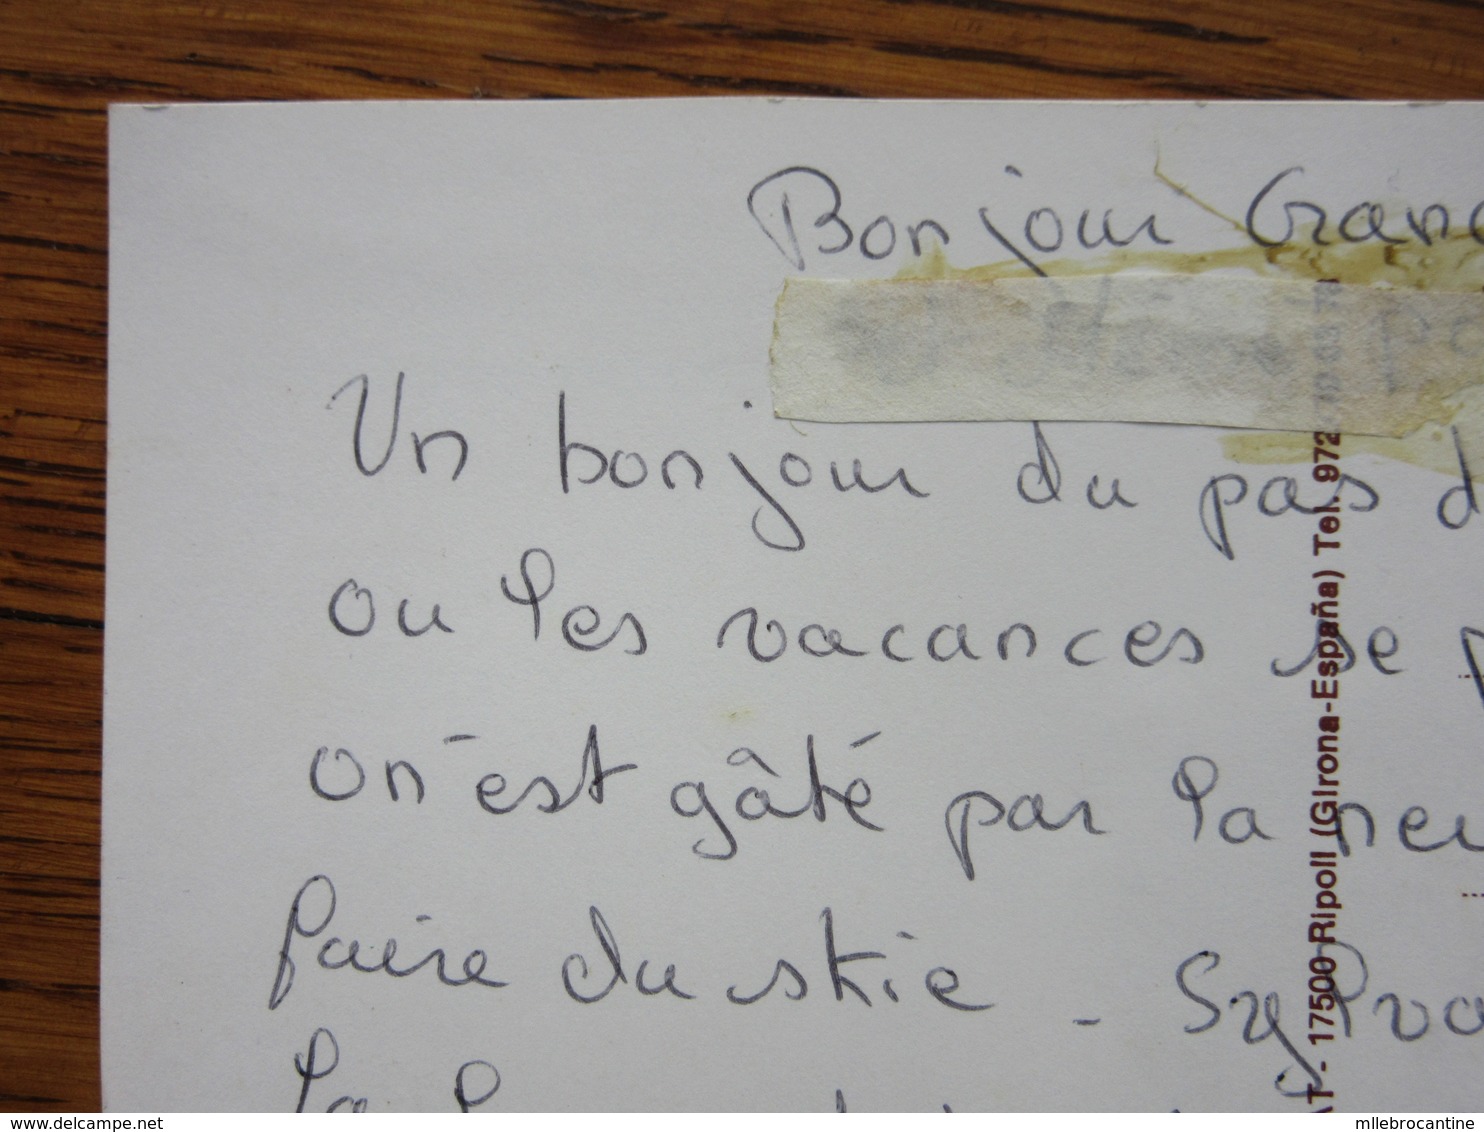 Bonjour Gran
Un bonjour du pas d
ou les vacances se p
on est gâté par la nei
faire du skie - Sylva
AT - 17500 Ripoll (Girona-España) Tel. 972
mllebrocantine